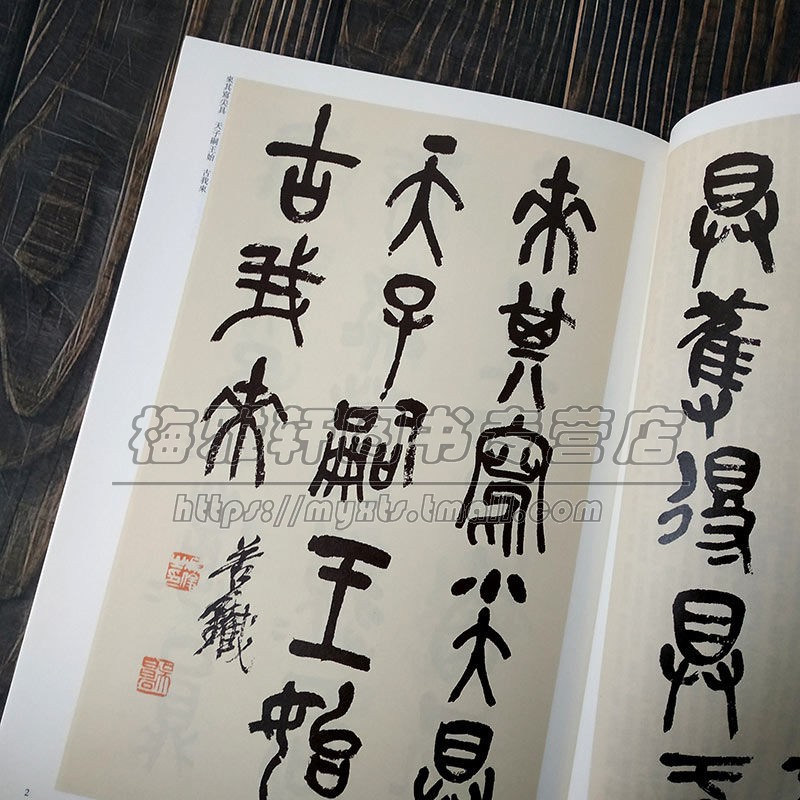 來其寫尖具 天子嗣王始 古我來
來其寫尖具
天子嗣王始
古我來
苦鐵
具舊得具天
梅雅轩图书专营店
https://myxts.tmall.com
2